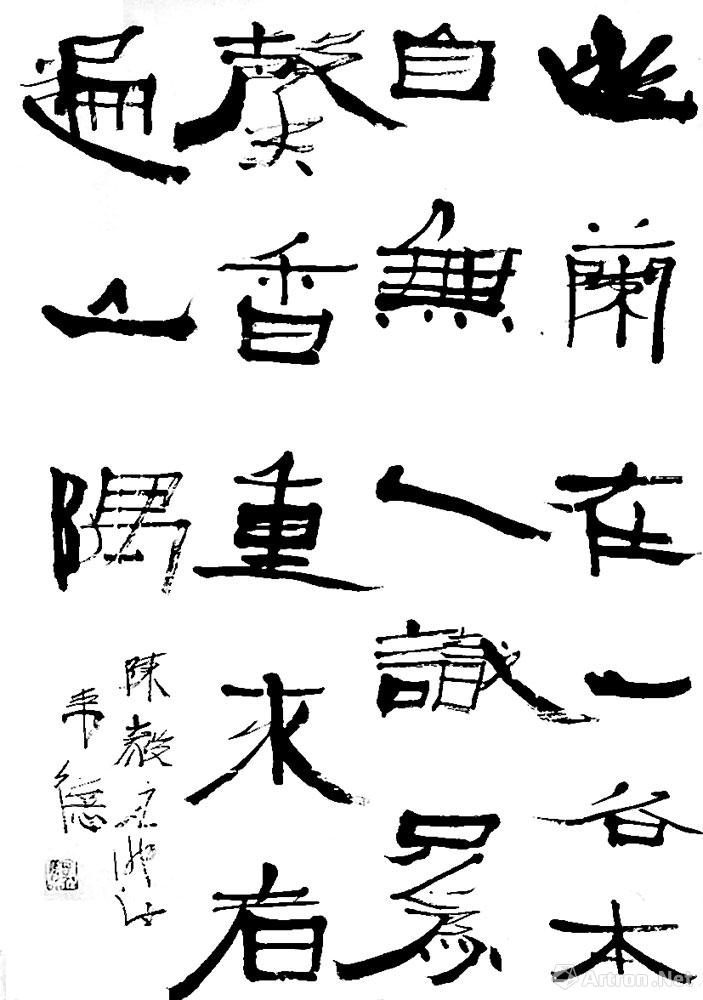 幽蘭在一谷本
自無人識只為
馨香重求者
遍山隅
陳毅
Artron.Net